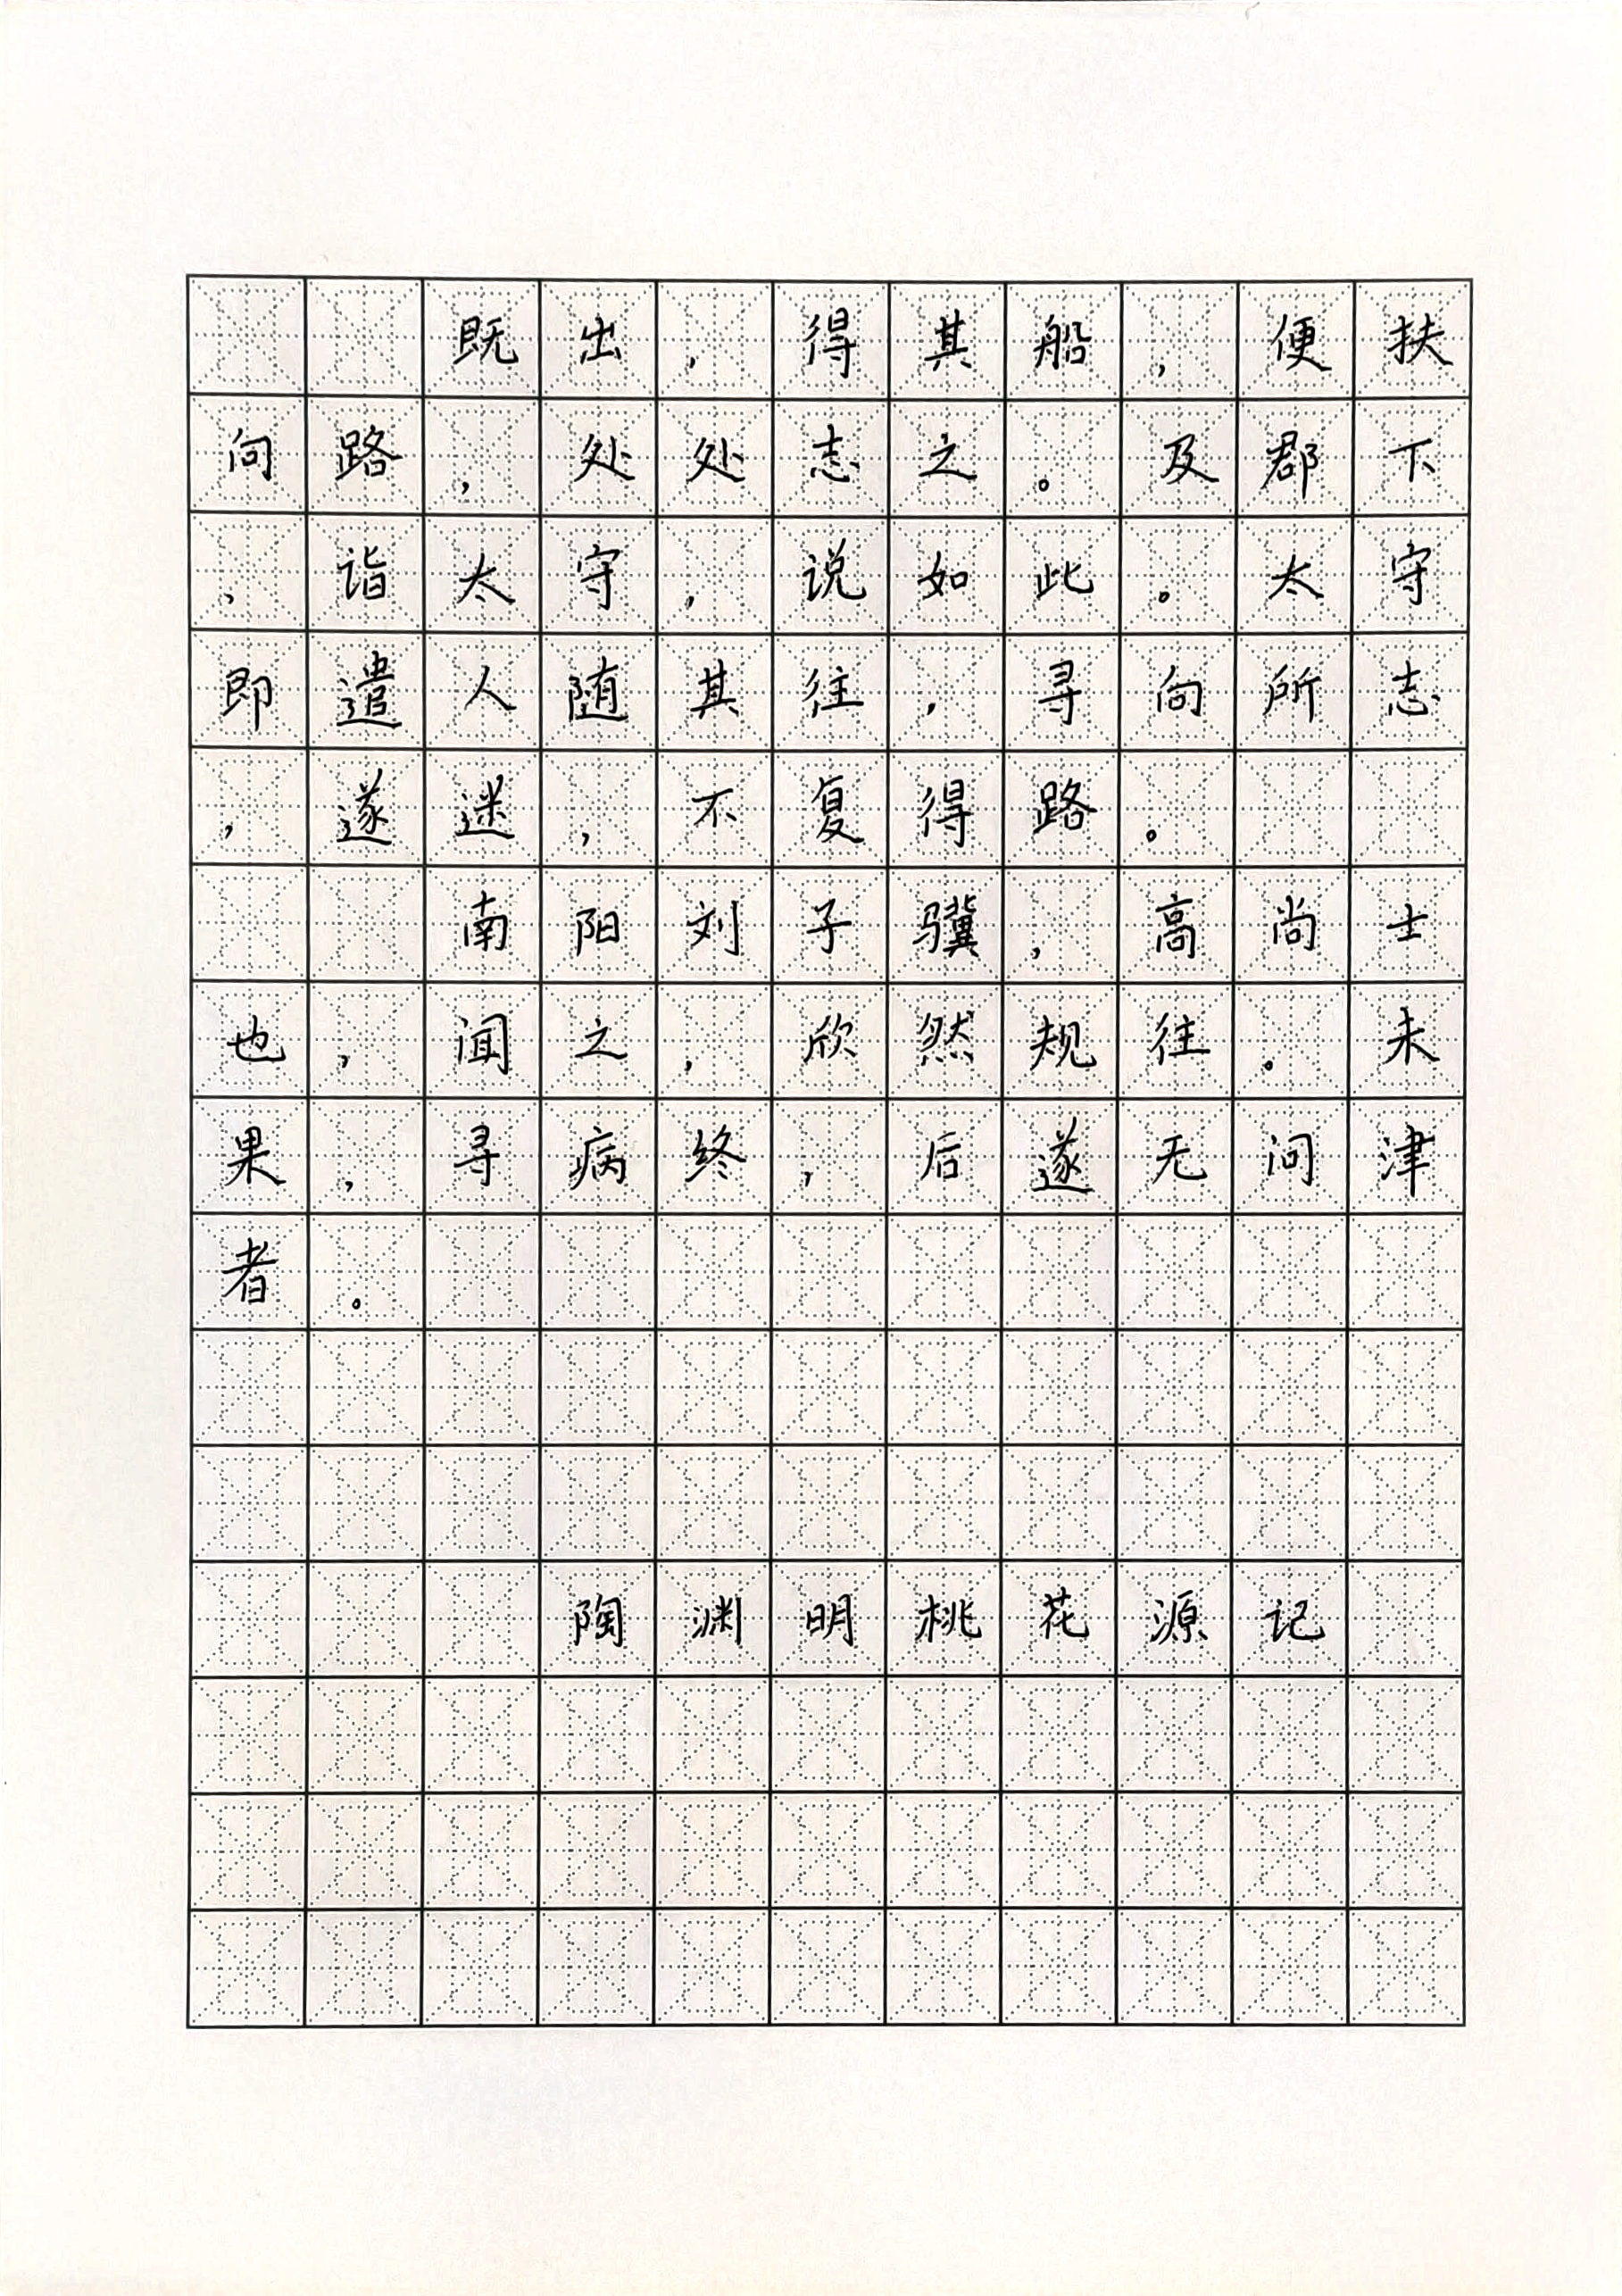 既出，得其船，便扶
向路，处处志之。及郡下
，诣太守，说如此。太守
即遣人随其往，寻向所志
，遂迷，不复得路。
南阳刘子骥，高尚士
也，闻之，欣然规往。未
果，寻病终，后遂无问津
者。
陶渊明桃花源记